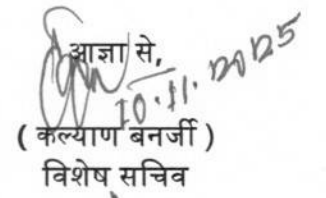 आज्ञा से,
10.11.2025
( कल्याण बनर्जी )
विशेष सचिव